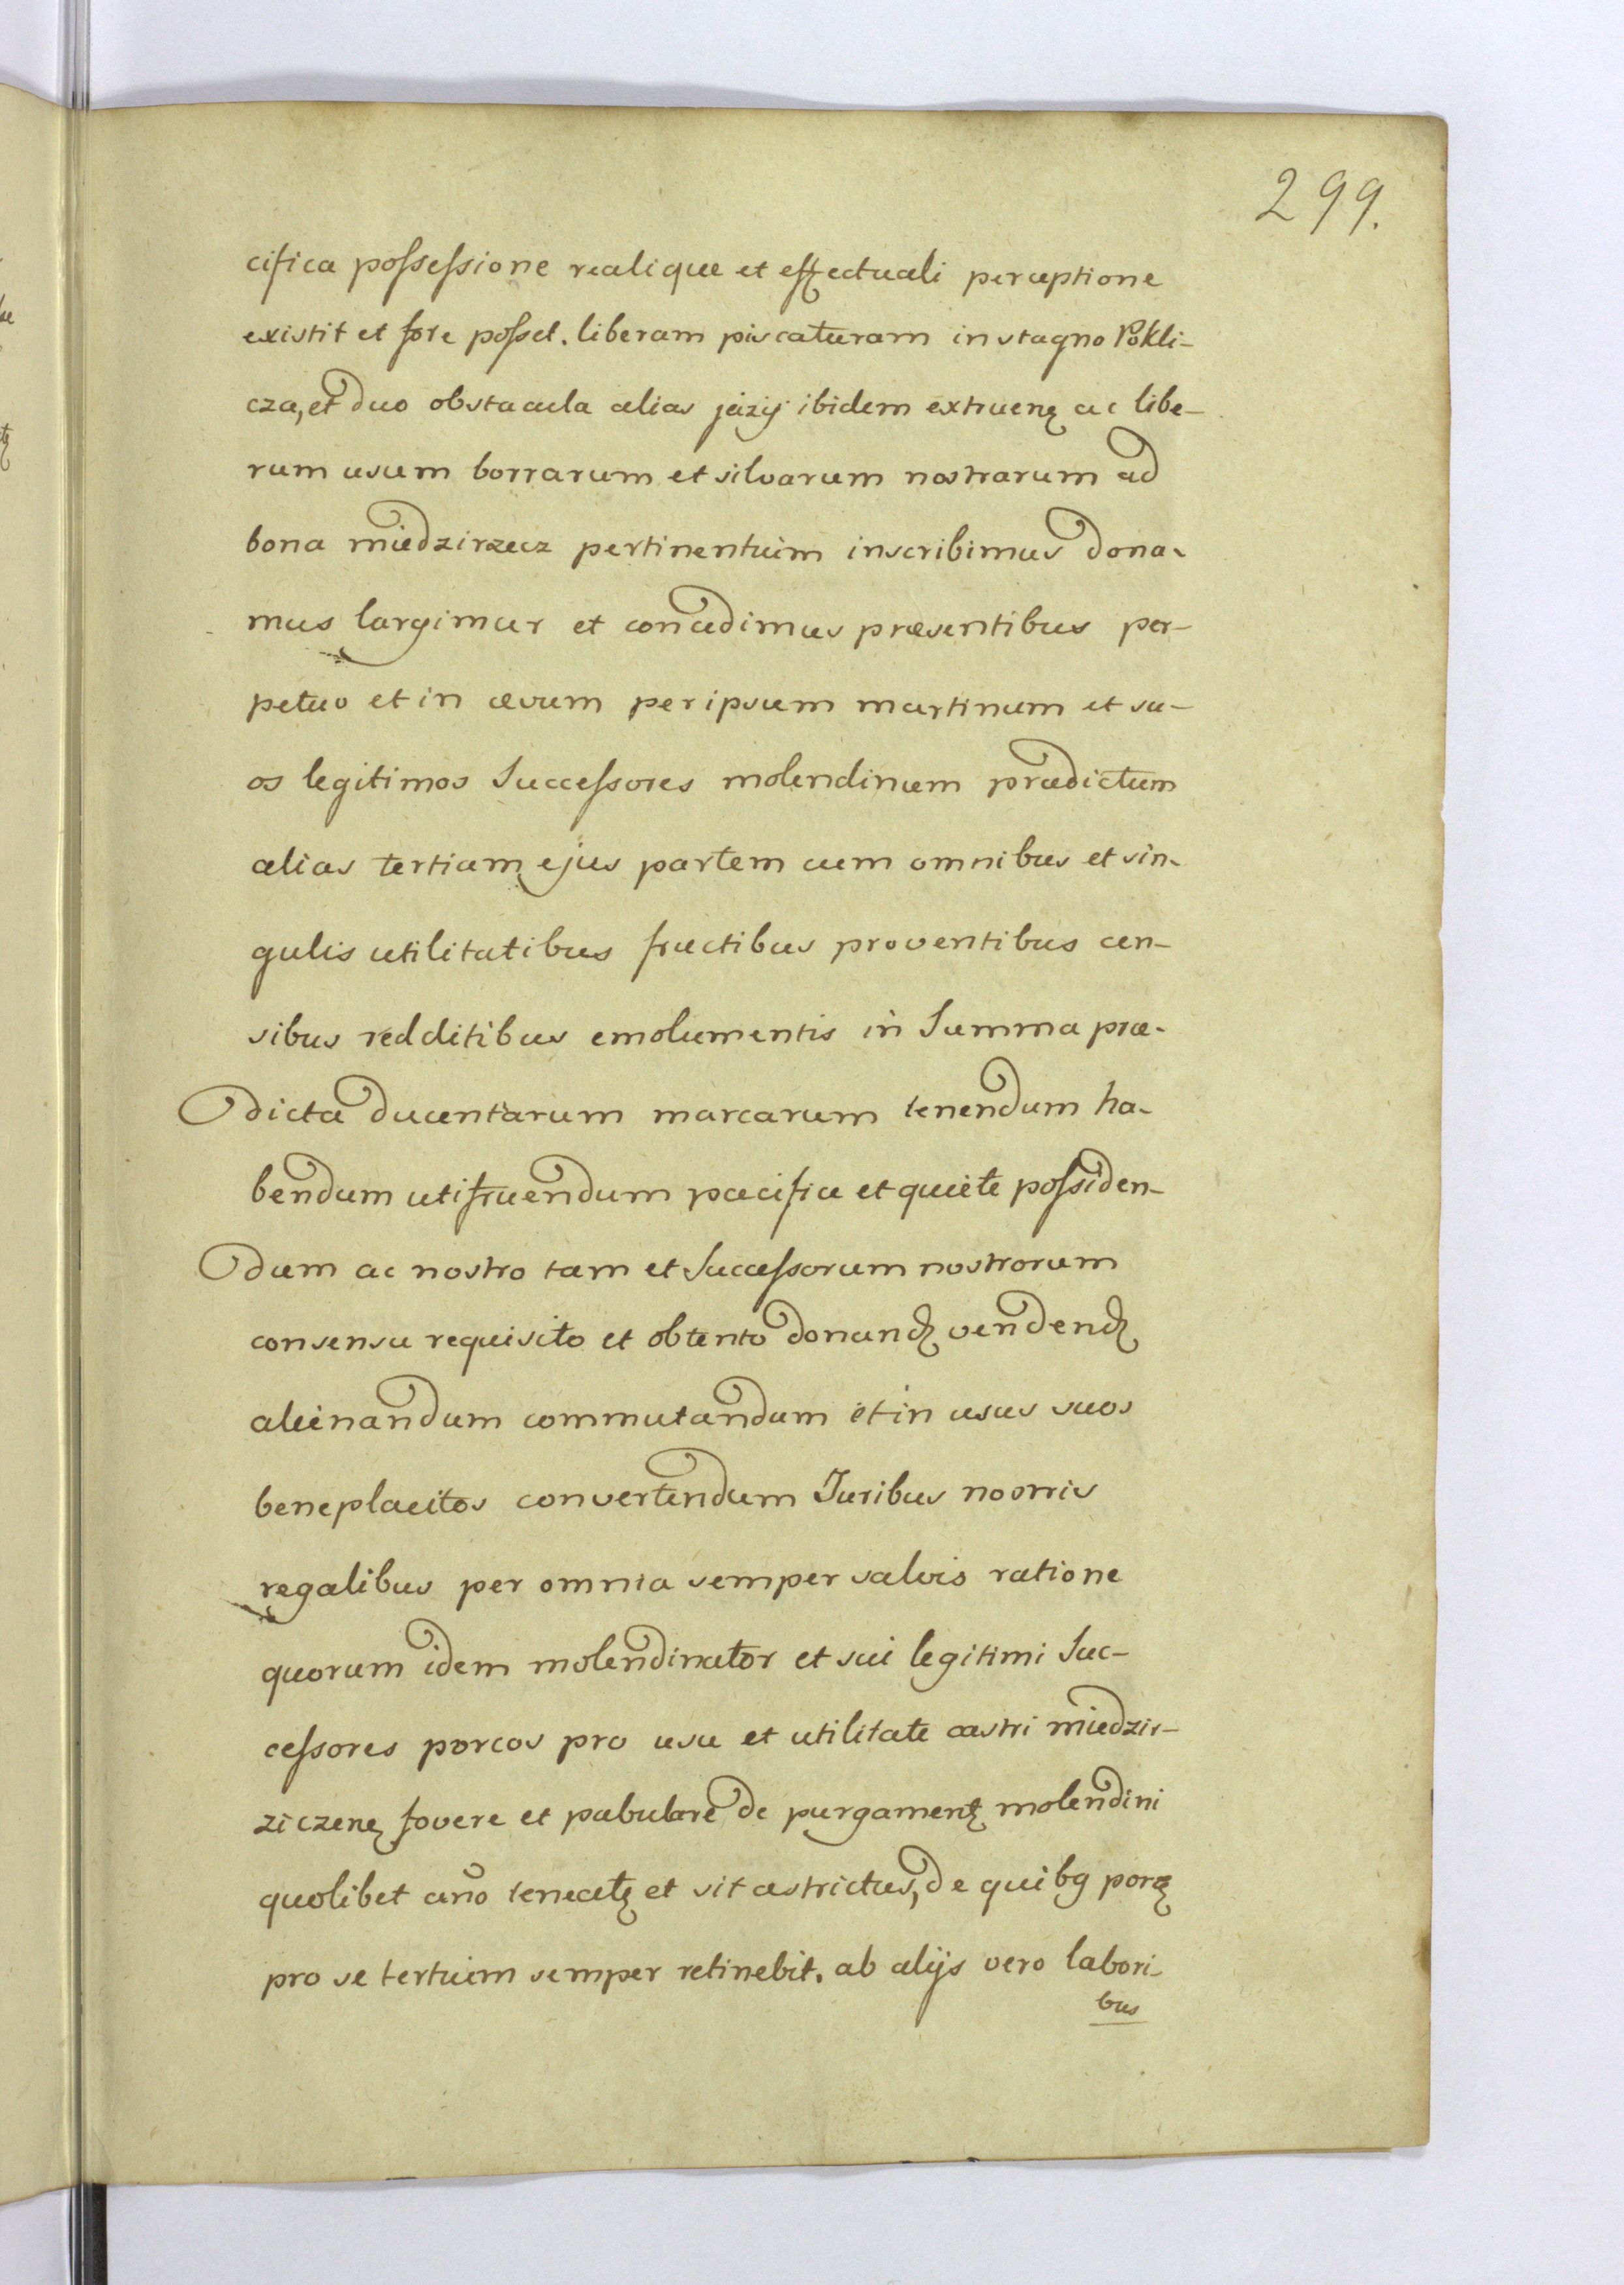 299.
cifica possessione realique et effectuali perceptione
existit et fore posset. liberam piscaturam in stagno Pokli-
cza, et duo obstacula alias jazij ibidem extruenꝫ ac libe-
rum usum borrarum et silvarum nostrarum ad
bona miedzirzecz pertinentium inscribimus dona-
mus largimur et concedimus præsentibus per-
petuo et in ævum per ipsum martinum et su-
os legitimos Successores molendinum prædictum
alias tertiam ejus partem cum omnibus et sin-
gulis utilitatibus fructibus proventibus cen-
sibus redditibus emolumentis in Summa præ-
dicta ducentarum marcarum tenendum ha-
bendum utifruendum pacifice et quiete possiden-
dum ac nostro tam et Successorum nostrorum
consensu requisito et obtento donandꝫ vendendꝫ
alienandum commutandum et in usus suos
beneplacitos convertendum Juribus nostris
regalibus per omnia semper salvis ratione
quorum idem molendinator et sui legitimi Suc-
cessores porcos pro usu et utilitate castri miedzir-
ziczenꝫ fovere et pabulare de purgamentꝫ molendini
quolibet año teneatꝫ et sit astrictus, de quibꝫ porcꝫ
pro se tertium semper retinebit. ab alijs vero labori-
bus